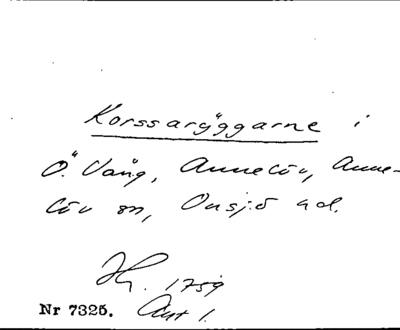 Korssarÿggarne i
Ö. Vång, Annelöv, Anne-
löv sn, Onsjö hd.
1759
Nr 7325. Akt 1.